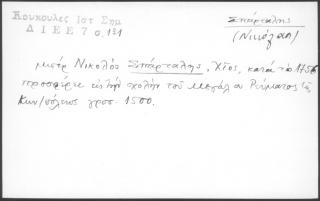 Κουκουλες Ιστ Σημ
Δ Ι Ε Ε 7 σ. 131
Σπάρταλης
(Νικόλαος)
μισέρ Νικολός Σπάρταλης, Χῖος, κατά τό 1756
προσφέρει εἰς τήν σχολήν τοῦ Μεγάλου Ρεύματος τῆς
Κων/πόλεως γροσ. 1500.